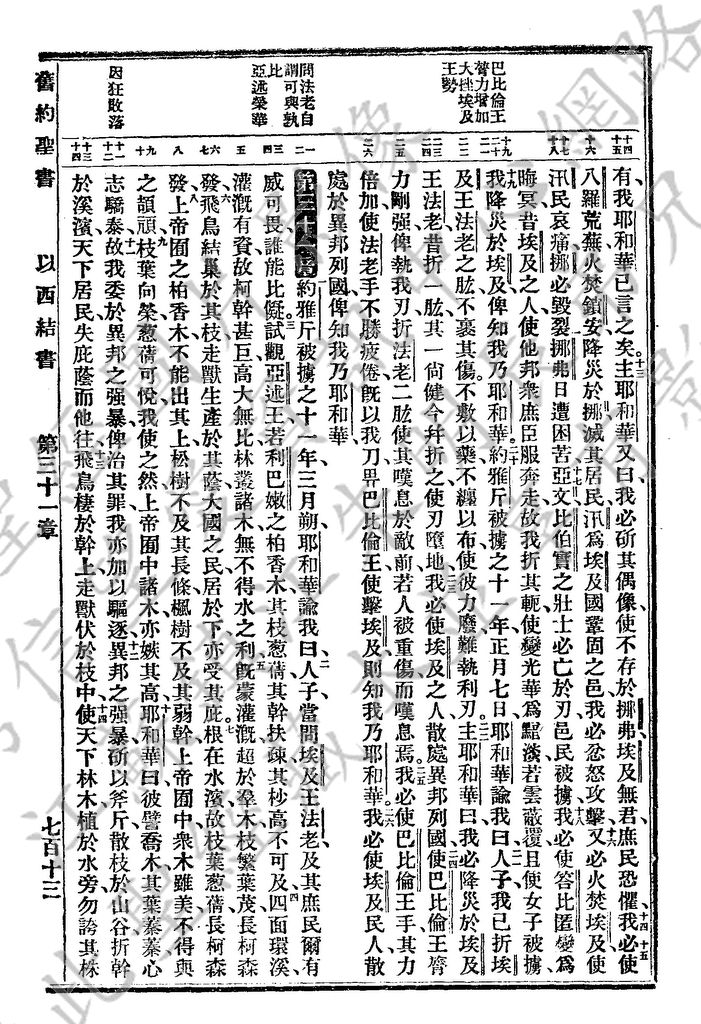 十四 十五
十六
十七 十八
十九 二十
二一
二二
二三
二四
二五
二六
一 二
三 四
五
六 七
八
九 十
十一 十二
十三 十四
巴比倫王
膂力增加
大挫埃及
王勢
問法老自
謂可與孰
比
亞述榮華
因狂敗落
有我耶和華已言之矣主耶和華又曰我必斫其偶像使不存於挪弗埃及無君庶民恐懼我必使
八羅荒蕪火焚鎖安降災於挪滅其居民汛爲埃及國鞏固之邑我必忿怒攻擊又必火焚埃及使
汛民哀痛挪必毀裂挪弗日遭困苦亞文比伯實之壯士必亡於刃邑民被擄我必使答比匿變爲
晦冥昔埃及之人使他邦衆庶臣服奔走故我折其軛使變光華爲黯淡若雲蔽覆且使女子被擄
我降災於埃及俾知我乃耶和華約雅斤被擄之十一年正月七日耶和華諭我曰人子我已折埃
及王法老之肱不裹其傷不敷以藥不纏以布使彼力廢難執利刃主耶和華曰我必降災於埃及
王法老昔折一肱其一尙健今幷折之使刃墮地我必使埃及之人散處異邦列國使巴比倫王膂
力剛強俾執我刃折法老二肱使其嘆息於敵前若人被重傷而嘆息焉我必使巴比倫王手其力
倍加使法老手不勝疲倦旣以我刀畀巴比倫王使擊埃及則知我乃耶和華我必使埃及民人散
處於異邦列國俾知我乃耶和華
第三十一章約雅斤被擄之十一年三月朔耶和華諭我曰人子當問埃及王法老及其庶民爾有
威可畏誰能比儗試觀亞述王若利巴嫩之柏香木其枝葱蒨其幹扶疎其杪高不可及四面環溪
灌漑有資故柯幹甚巨高大無比林叢諸木無不得水之利旣蒙灌漑超於羣木枝繁葉茂長柯森
發飛鳥結巢於其枝走獸生產於其蔭大國之民居於下亦受其庇根在水濱故枝葉葱蒨長柯森
發上帝囿之柏香木不能出其上松樹不及其長條楓樹不及其弱幹上帝囿中衆木雖美不得與
之頡頏枝葉向榮葱蒨可悅我使之然上帝囿中諸木亦嫉其高耶和華曰彼譬喬木其葉蓁蓁心
志驕泰故我委於異邦之强暴俾治其罪我亦加以驅逐異邦之强暴斫以斧斤散枝於山谷折幹
於溪濱天下居民失庇蔭而他往飛鳥棲於幹上走獸伏於枝中使天下林木植於水旁勿誇其株
舊約聖書 以西結書 第三十一章 七百十三